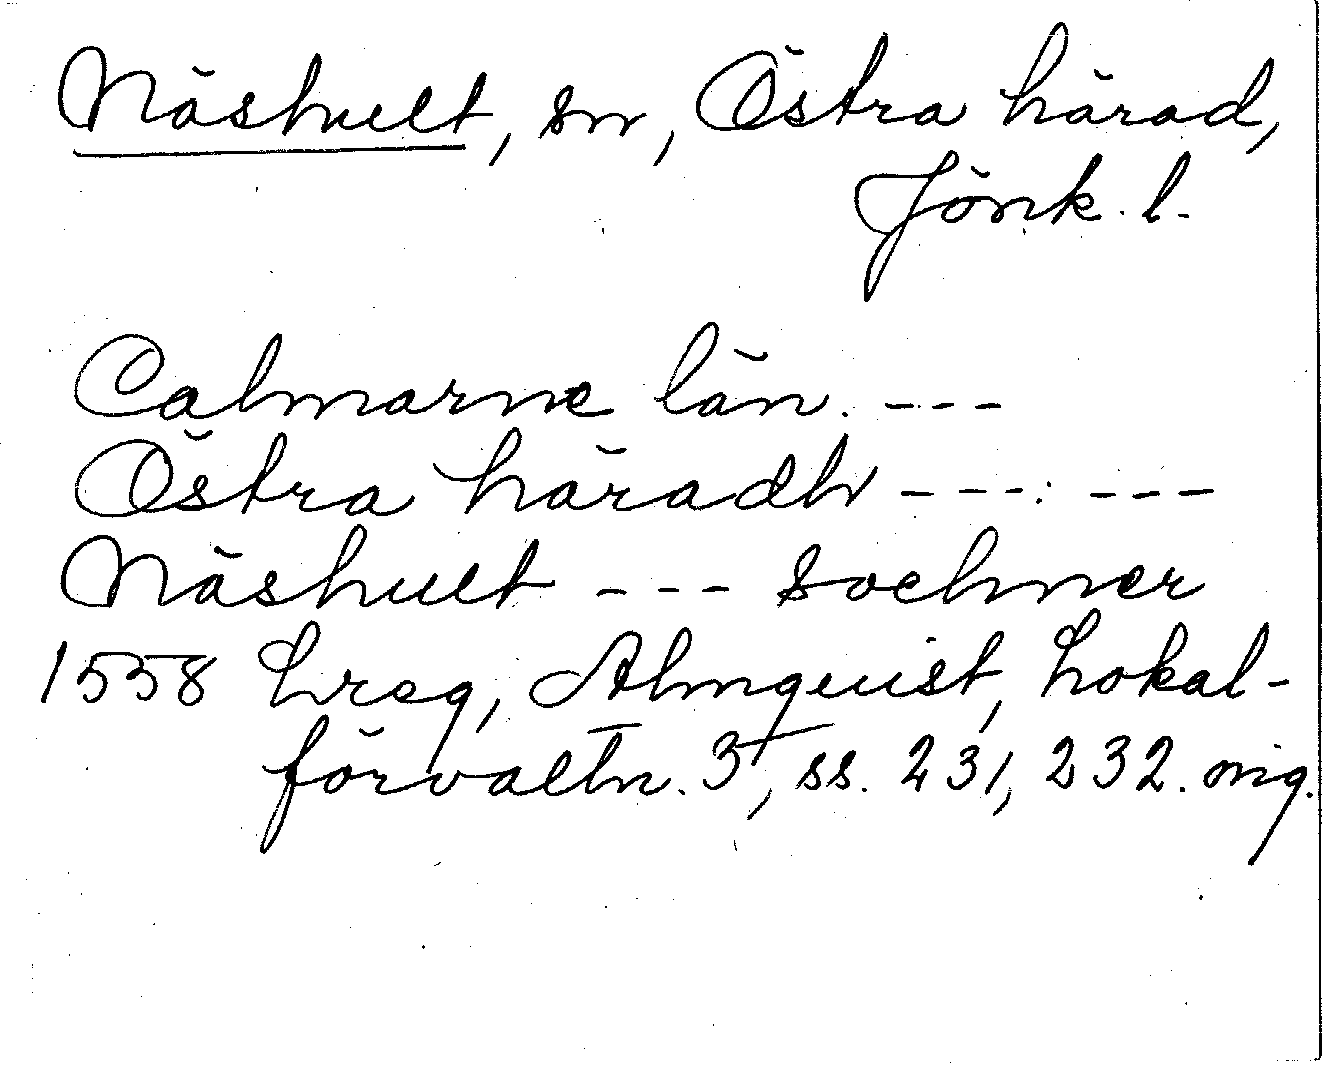 Näshult, sn, Östra härad,
Jönk. l.
Calmarne län. ---
Östra häradh ---: ---
Näshult --- sochner
1558 Lreg, Almquist, Lokal-
förvaltn. 3, ss. 231, 232. orig.